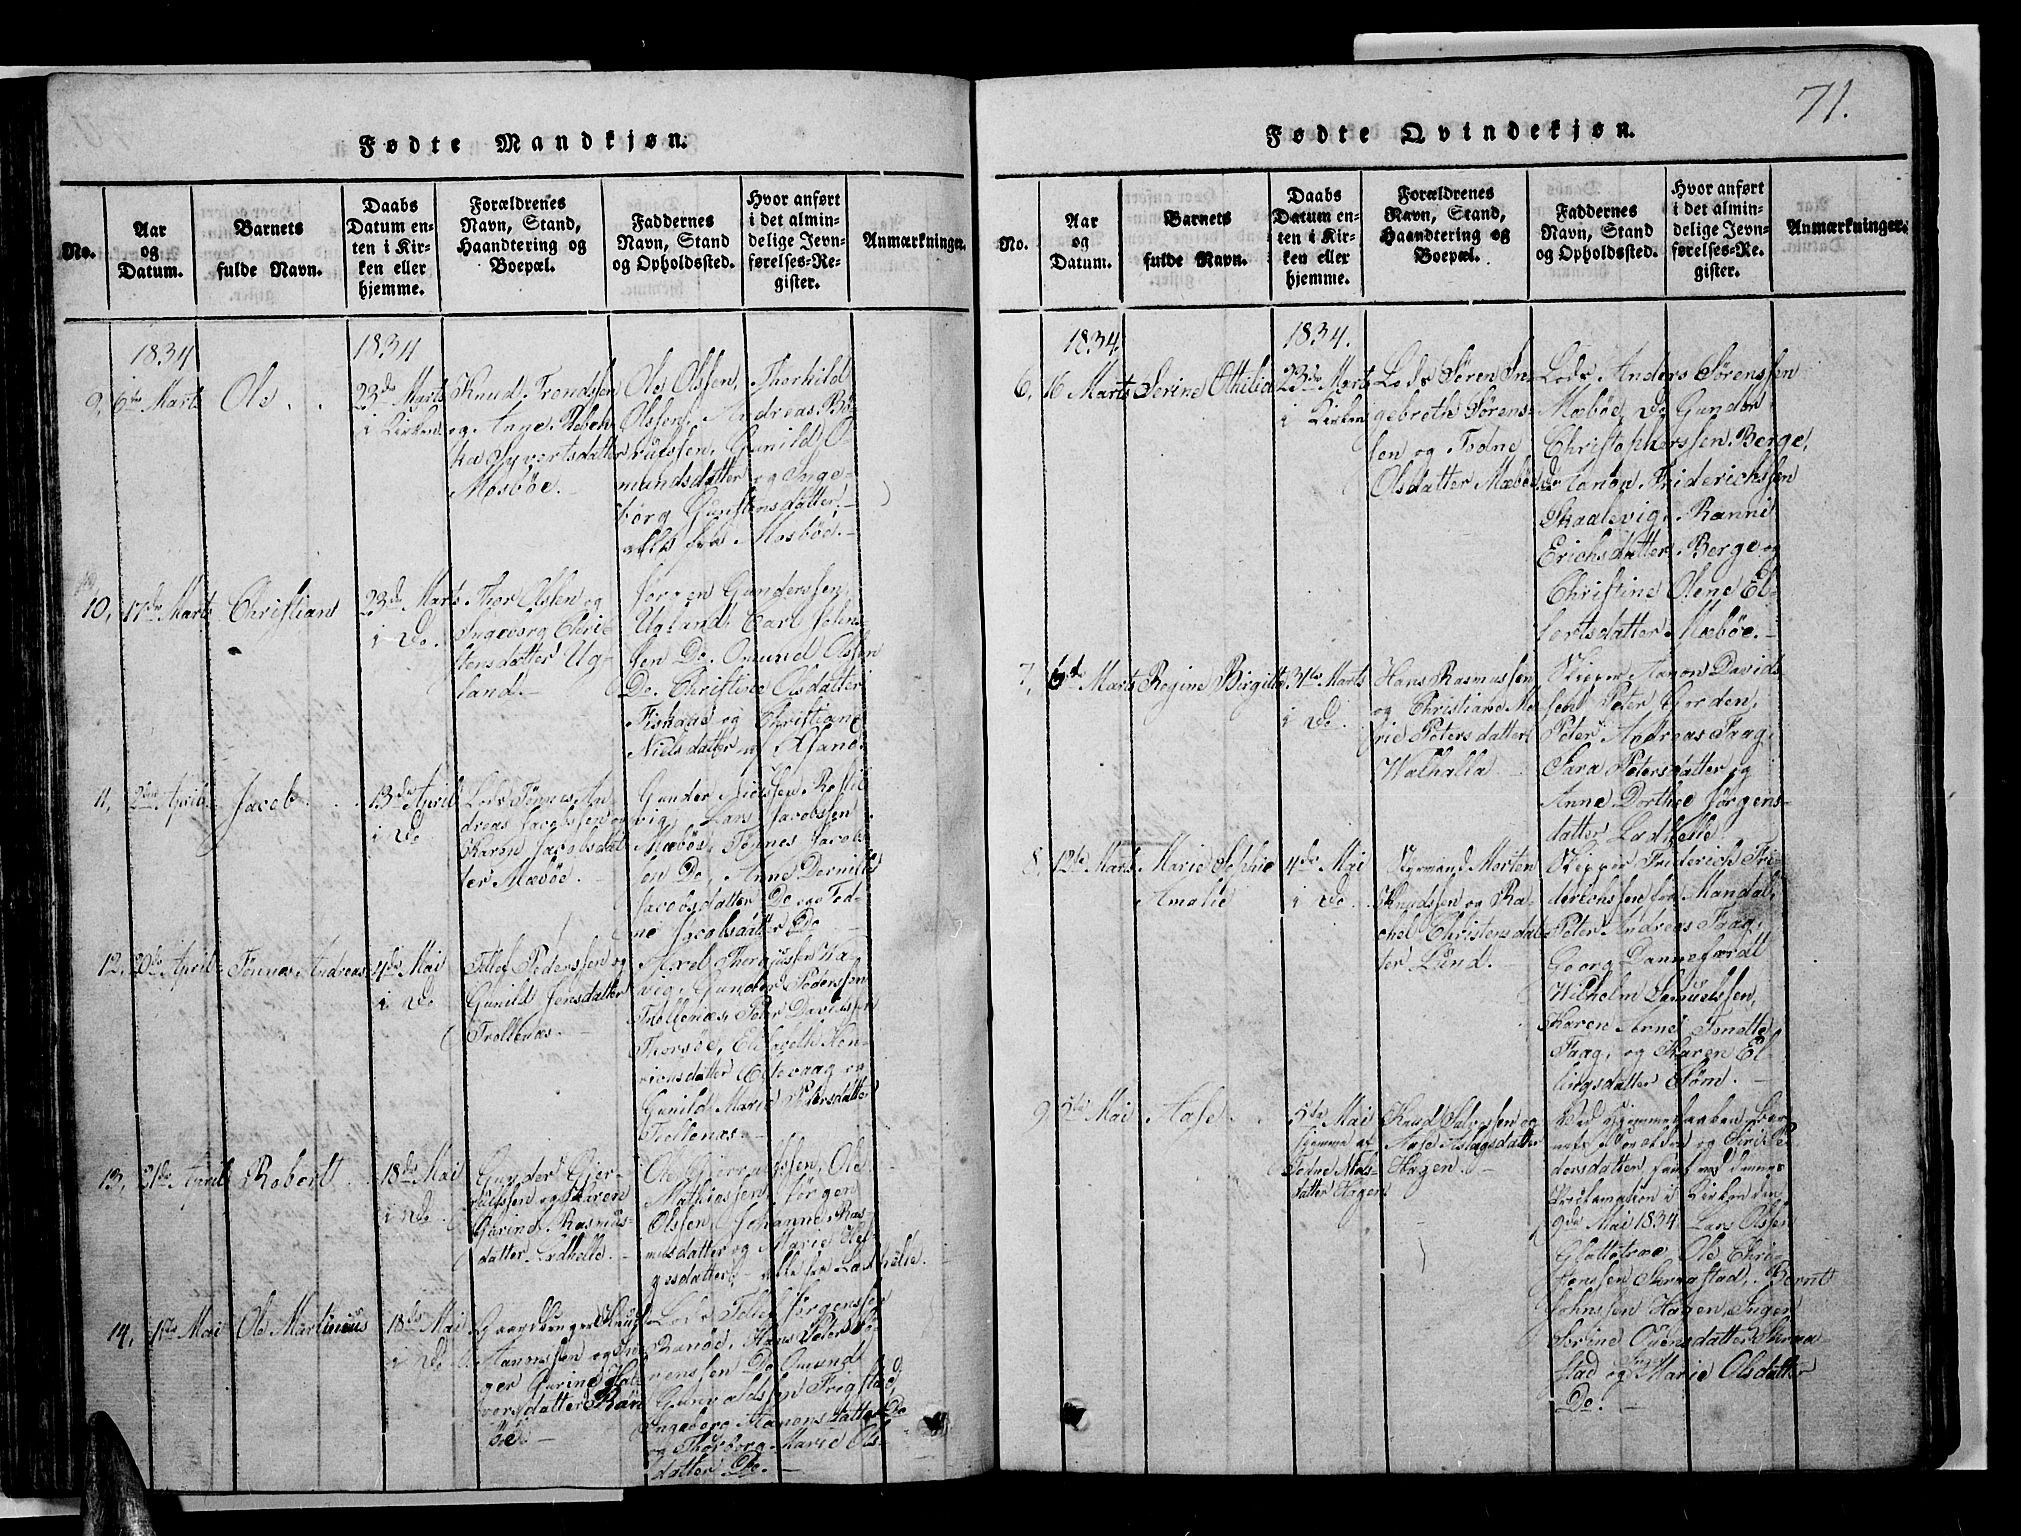 Fødte Mandkjøn.
No.
Aar
og
Datum.
Barnets
fulde Navn.
Daabs
Datum en-
ten i Kir-
ken eller
hjemme.
Forældrenes
Navn, Stand,
Haandtering og
Boepæl.
Faddernes
Navn, Stand
og Opholdssted.
Hvor anført
i det almin-
delige Jevn-
førelses-Re-
gister.
Anmærkninger.
1834
1834
9,
6te Marts
Ole
23de Marts
i Kirken
Knud Trondssen
og Anne Rebek-
ka Syvertsdatter
Mosböe.
Ole Olssen, Thorkild
Olssen, Andreas Bö-
rulssen, Gunild O-
mundsdatter og Inge-
borg Gunstensdatter,
alle fra Mosböe.
10,
17de Marts
Christian
23de Marts
i Do.
Thor Olssen og
Ingeborg Chri-
stensdatter Ug-
land.
Jörgen Gunderssen
Ugland, Carl Johns-
sen Do. Omund Olssen
Do. Christine Olsdatter
Fiskaae og Christiane
Nielsdatter af Chsand.
11,
2den April
Jacob
13de April
i Do
Lods Tönnes An-
dreas Jacobssen og
Karen Jacobsdat-
ter Mæböe.
Gunder Nielssen Rossie-
vig, Lars Jacobssen
Mæböe, Tönnes Jacobs-
sen Do, Anne Dornilis
Jacobsdatter Do og Tod-
ne Jacobsdatter Do
12,
20de April
Tönnes Andreas
4de Mai
i Do
Tellef Pederssen og
Gunild Jensdatter
Trollenæs.
Axel Thergussen Ka-
vig, Gunder Pederssen
Trollenæs, Peder Davidssen
Thorsöe, Elisabeth Hen-
richsdatter Eidevaag og
Gunild Marie Pedersdatter
Trollenæs.
13,
21de April
Robert
18de Mai
i Do.
Gunder Gjer-
ulssen og Karen
Gurine Rasmus-
datter Ladhelle.
Ole Gjerulssen, Ole
Mathiassen, Jörgen
Olssen, Johanne Ras-
musdatter og Marie Ol-
gesdatter, alle fra Ladhelle.
14,
1ste Mai
Ole Martineus
18de Mai
i Do
Gaardbruger Knud
Aannssen og In-
ger Gurine Hal-
vorsdatter Ran-
döe.
Lods Tellef Jörgenssen
Randöe, Hans Peter Sö-
renssen Do Omund
Gunvaldssen Frigstad,
Ingeborg Aanonsdatter Do
og Thorborg Marie Ols-
datter Do.
71.
Fødte Qvindekjøn.
No.
Aar
og
Datum.
Barnets
fulde Navn.
Daabs
Datum en-
ten i Kir-
ken eller
hjemme.
Forældrenes
Navn, Stand,
Haandtering og
Boepæl.
Faddernes
Navn, Stand
og Opholdssted.
Hvor anført
i det almin-
delige Jevn-
førelses-Re-
gister.
Anmærkninger.
1834.
1834.
6,
16 Marts
Serine Ottilia
23de Marts
i Kirken
Lods Sören In-
gebreth Sörens-
sen og Todne
Olsdatter Mæböe
Lods Anders Sörenssen
Mæböe, Do Gunder
Christopherssen Berge,
do Aanon Friderichssen
Skaalevig, Ranni
Erichsdatter Berge og
Christine Olene El-
lertsdatter Mæböe.
7,
6te Marts
Regine Birgitte
31te Marts
i Do.
Hans Rasmussen
og Christiane Ma-
rie Petersdatter
Walhalla
Skipper Aanon Davids-
sen Peter Gorden,
Peter Andreas Faag,
Sara Petersdatter og
Anne Dorthea Jörgens-
datter Ladhelle.
8,
12te Marts
Marie Sophie
Amalie
4de Mai
i Do.
Styrmand Morten
Knudssen og Ra-
chel Christensdat-
ter Lund.
Skipper Friderich Fri-
derichssen fra Mandal,
Peter Andreas Faag,
Georg Dannefærdt
Wilhelm Samuelssen,
Karen Anne Tonette
Faag, og Karen El-
lingsdatter Söm.
9
5te Mai
Aase
5te Mai
hjemme af
Todne Niels-
datter Hagen
Knud Salvessen og
Aase Aslagsdatter
Hagen.
Ved Hjemmedaaben Bar-
nets Forældre og Siri Pe-
dersdatter, samt ved dennes
Proclamation i Kirken den
9de Mai 1834 Lars Olssen
Glattetræe, Ole Chri-
stenssen Skraastad, Bernt
Johnssen Hagen, Inger
Serine Ouensdatter Skraa-
stad og Inger Marie Olsdatter
Do.